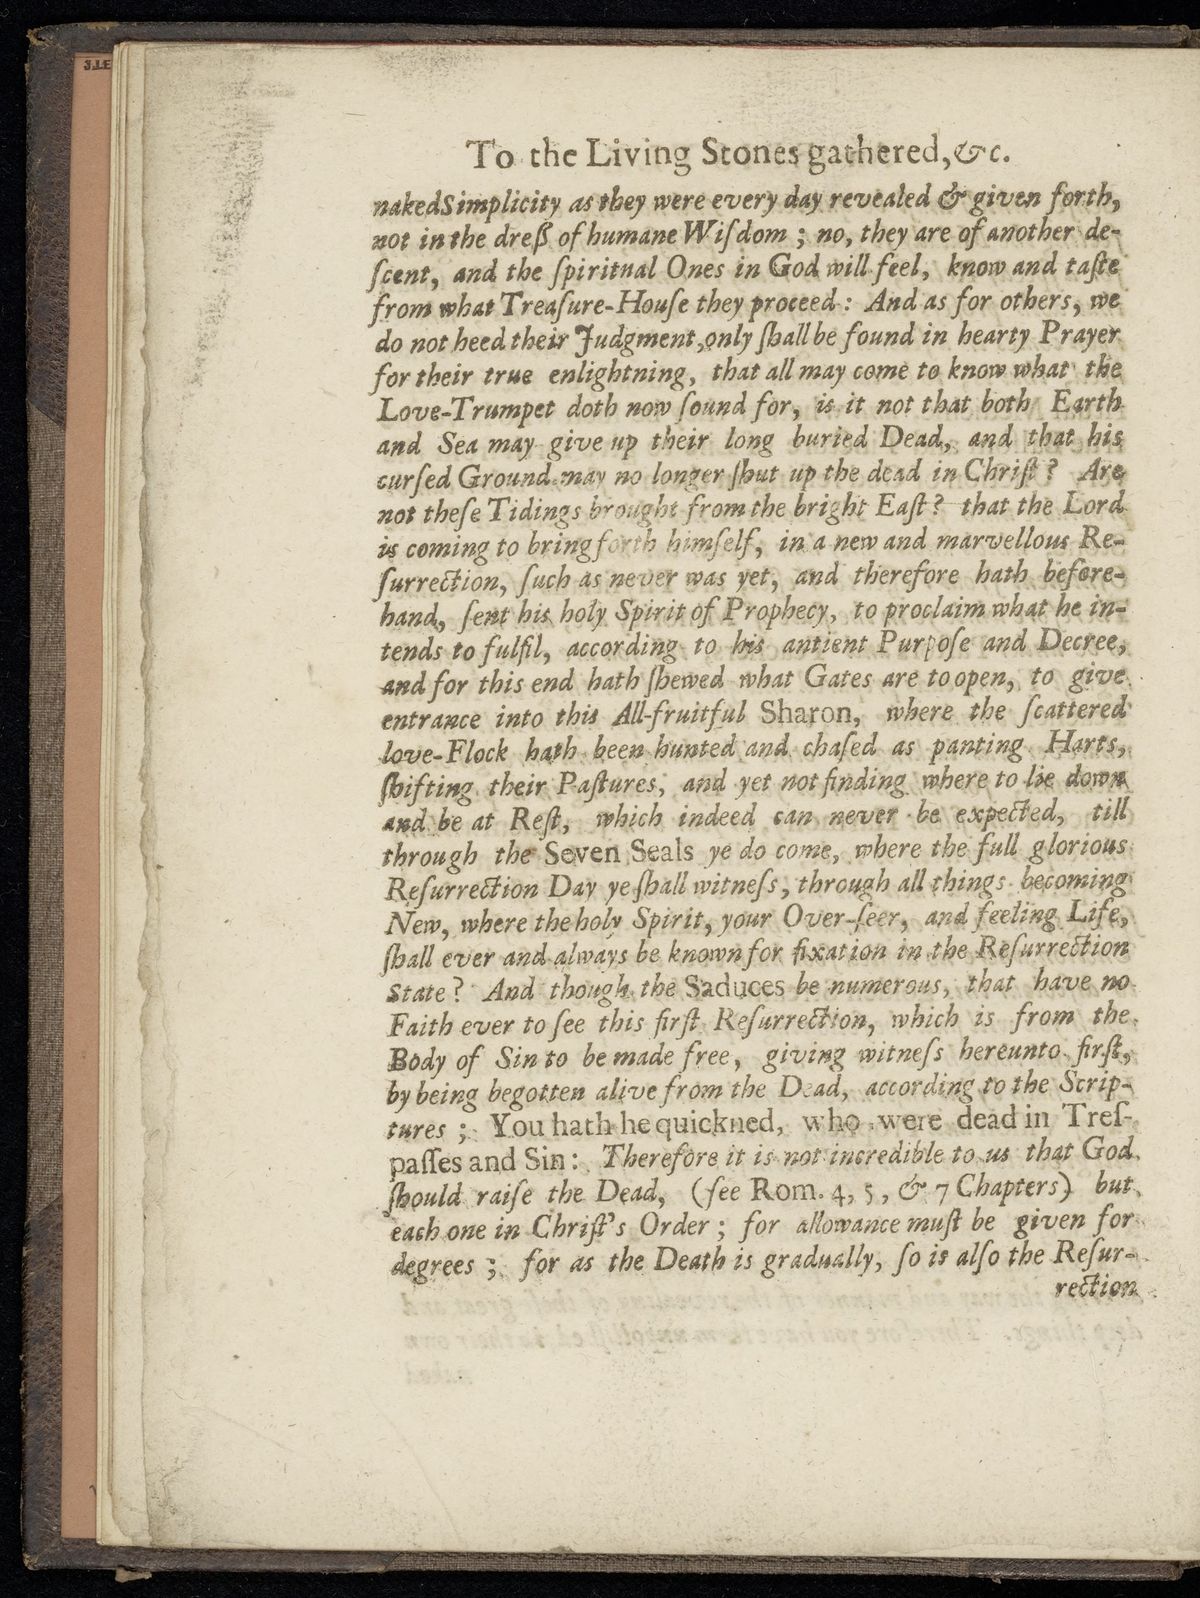 To the Living Stones gathered, &c.
naked Simplicity as they were every day revealed & given forth,
not in the dreß of humane Wiſdom ; no, they are of another de-
ſcent, and the ſpiritnal Ones in God will feel, know and taſte
from what Treaſure-Houſe they proceed : And as for others, we
do not heed their Judgment, only ſhall be found in hearty Prayer
for their true enlightning, that all may come to know what the
Love-Trumpet doth now ſound for, is it not that both Earth
and Sea may give up their long buried Dead, and that his
curſed Ground may no longer ſhut up the dead in Chriſt ? Are
not theſe Tidings brought from the bright Eaſt ? that the Lord
is coming to bring forth himſelf, in a new and marvellous Re-
ſurrection, ſuch as never was yet, and therefore hath before-
hand, ſent his holy Spirit of Prophecy, to proclaim what he in-
tends to fulfil, according to his antient Purpoſe and Decree,
and for this end hath ſhewed what Gates are to open, to give
entrance into this All-fruitful Sharon, where the ſcattered
love-Flock hath been hunted and chaſed as panting Harts,
ſhifting their Paſtures, and yet not finding where to lie down
and be at Reſt, which indeed can never be expected, till
through the Seven Seals ye do come, where the full glorious
Reſurrection Day ye ſhall witneſs, through all things becoming
New, where the holy Spirit, your Over-ſeer, and feeling Life,
ſhall ever and always be known for fixation in the Reſurrection
State ? And though the Saduces be numerous, that have no
Faith ever to ſee this firſt Reſurrection, which is from the
Body of Sin to be made free, giving witneſs hereunto firſt,
by being begotten alive from the Dead, according to the Scrip-
tures ; You hath he quickned, who were dead in Treſ-
paſſes and Sin : Therefore it is not incredible to us that God
ſhould raiſe the Dead, (ſee Rom. 4, 5, & 7 Chapters) but
each one in Chriſt's Order ; for allowance muſt be given for
degrees ; for as the Death is gradually, ſo is alſo the Reſur-
rection